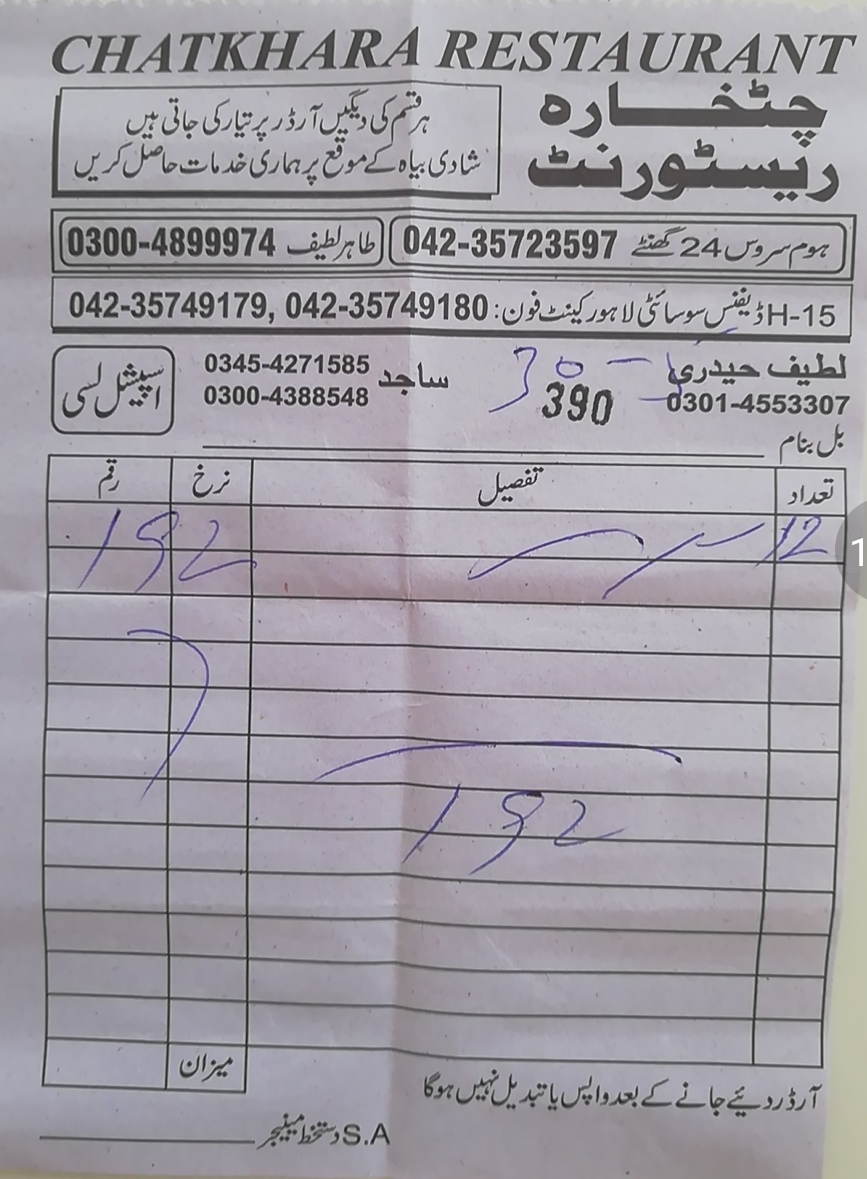 CHATKHARA RESTAURANT
چٹخارہ
ریسٹورنٹ
ہر قسم کی دیگیں آرڈر پر تیار کی جاتی ہیں
شادی بیاہ کے موقع پر ہماری خدمات حاصل کریں
ہوم سروس 24 گھنٹے 042-35723597
طاہر لطیف 0300-4899974
H-15 ڈیفنس سوسائٹی لاہور کینٹ فون: 042-35749179, 042-35749180
لطیف حیدری
0301-4553307
390
ساجد 0345-4271585
0300-4388548
اسپیشل لسی
بل بنام
تعداد تفصیل نرخ رقم
12 192
192
میزان
آرڈر دئیے جانے کے بعد واپس یا تبدیل نہیں ہوگا
S.A دستخط مینیجر
1